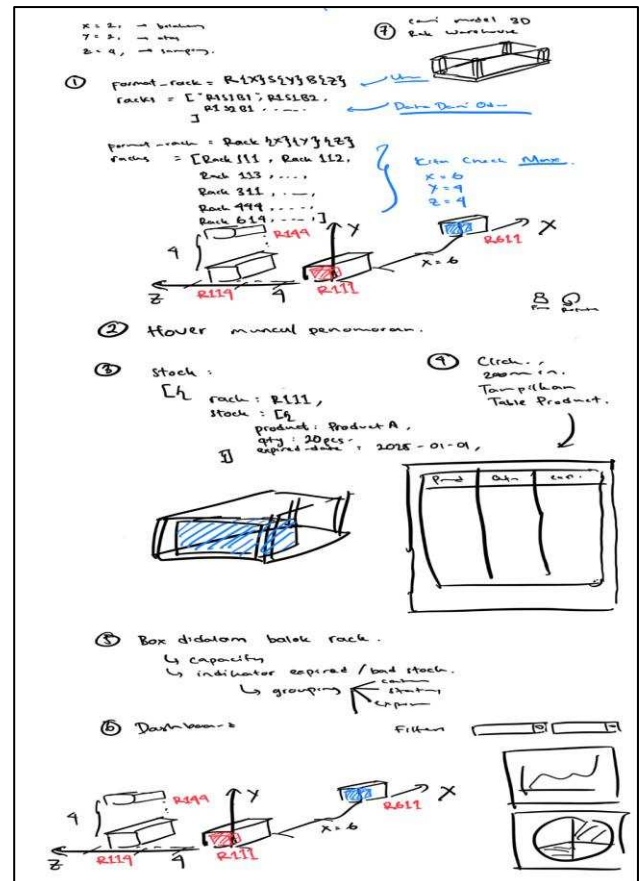 x = 2, → belakang
y = 2, → atas
z = 4, → samping.
⑦ cari model 3D
Rak Warehouse
① format_rack = R{X}S{Y}B{Z}
racks = ["R1S1B1", R1S1B2,
R1S2B1, .....
]
Data Dari Odoo
format_rack = Rack {X}{Y}{Z}
racks = [Rack 111, Rack 112,
Rack 113, ....,
Rack 311, ....,
Rack 444, ....,
Rack 614, ....,]
Kita Check Max.
X = 6
Y = 4
Z = 4
4
R144
Y
X
R611
x = 6
Z
R114
4
R111
② Hover muncul penomoran.
③ Stock :
[{
rack : R111,
stock : [{
product : Product A,
qty : 20pcs.
expired-date : 2025-01-01,
}]
④ Click.,
zoom in.
Tampilkan
Table Product.
Prod
⑤ Box didalam balok rack.
↳ capacity
↳ indikator expired / bad stock.
↳ grouping
⑥ Dashboard
Filter
4
R144
Y
X
R611
x = 6
Z
R114
4
R111